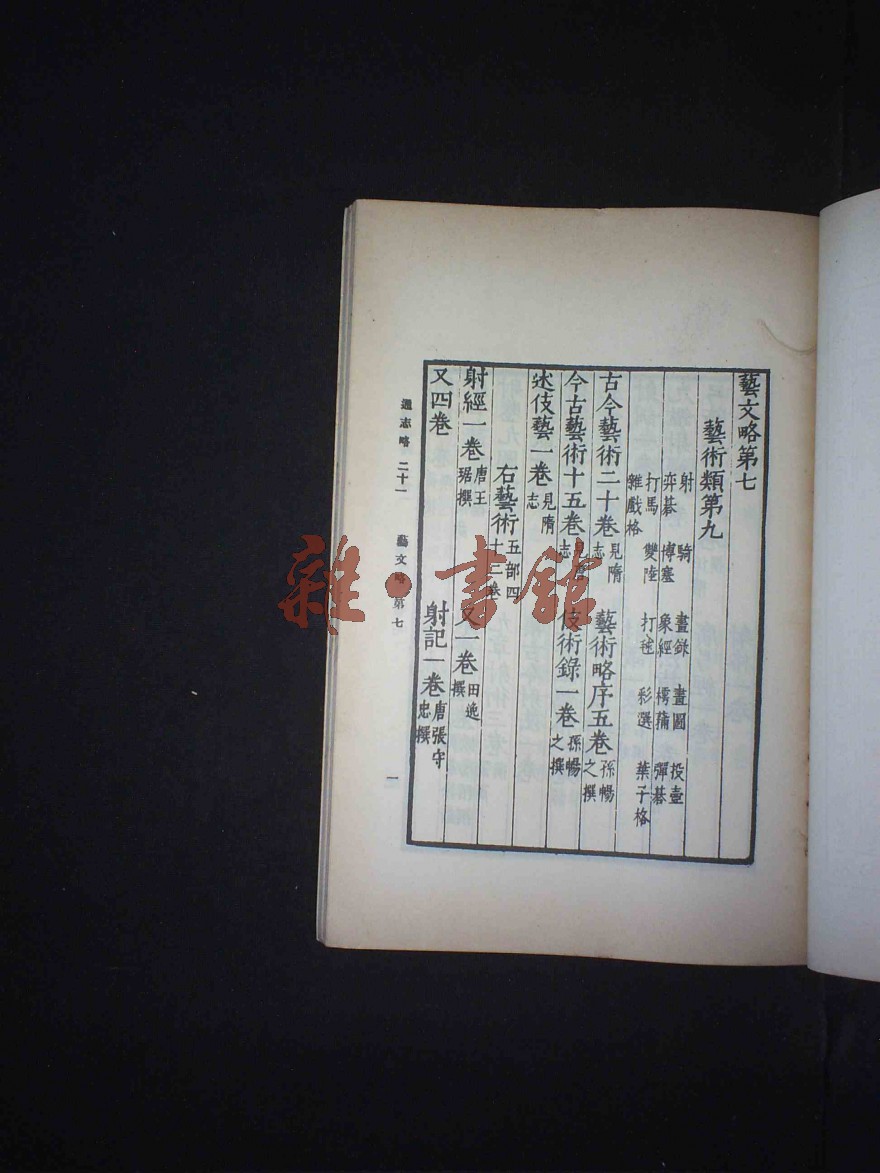 藝文略第七
藝術類第九
射 騎 畫錄 畫圖 投壺
弈棊 博塞 象經 樗蒱 彈棊
打馬 雙陸 打毬 彩選 葉子格
雜戲格
古今藝術二十卷 見隋志 藝術略序五卷 孫暢之撰
今古藝術十五卷 見唐志 伎術錄一卷 孫暢之撰
述伎藝一卷 見隋志
右藝術 五部四十二卷
射經一卷 唐王琚撰 又一卷 田逸撰
又四卷 射記一卷 唐張守忠撰
通志略 二十一 藝文略第七 一
雜·書館